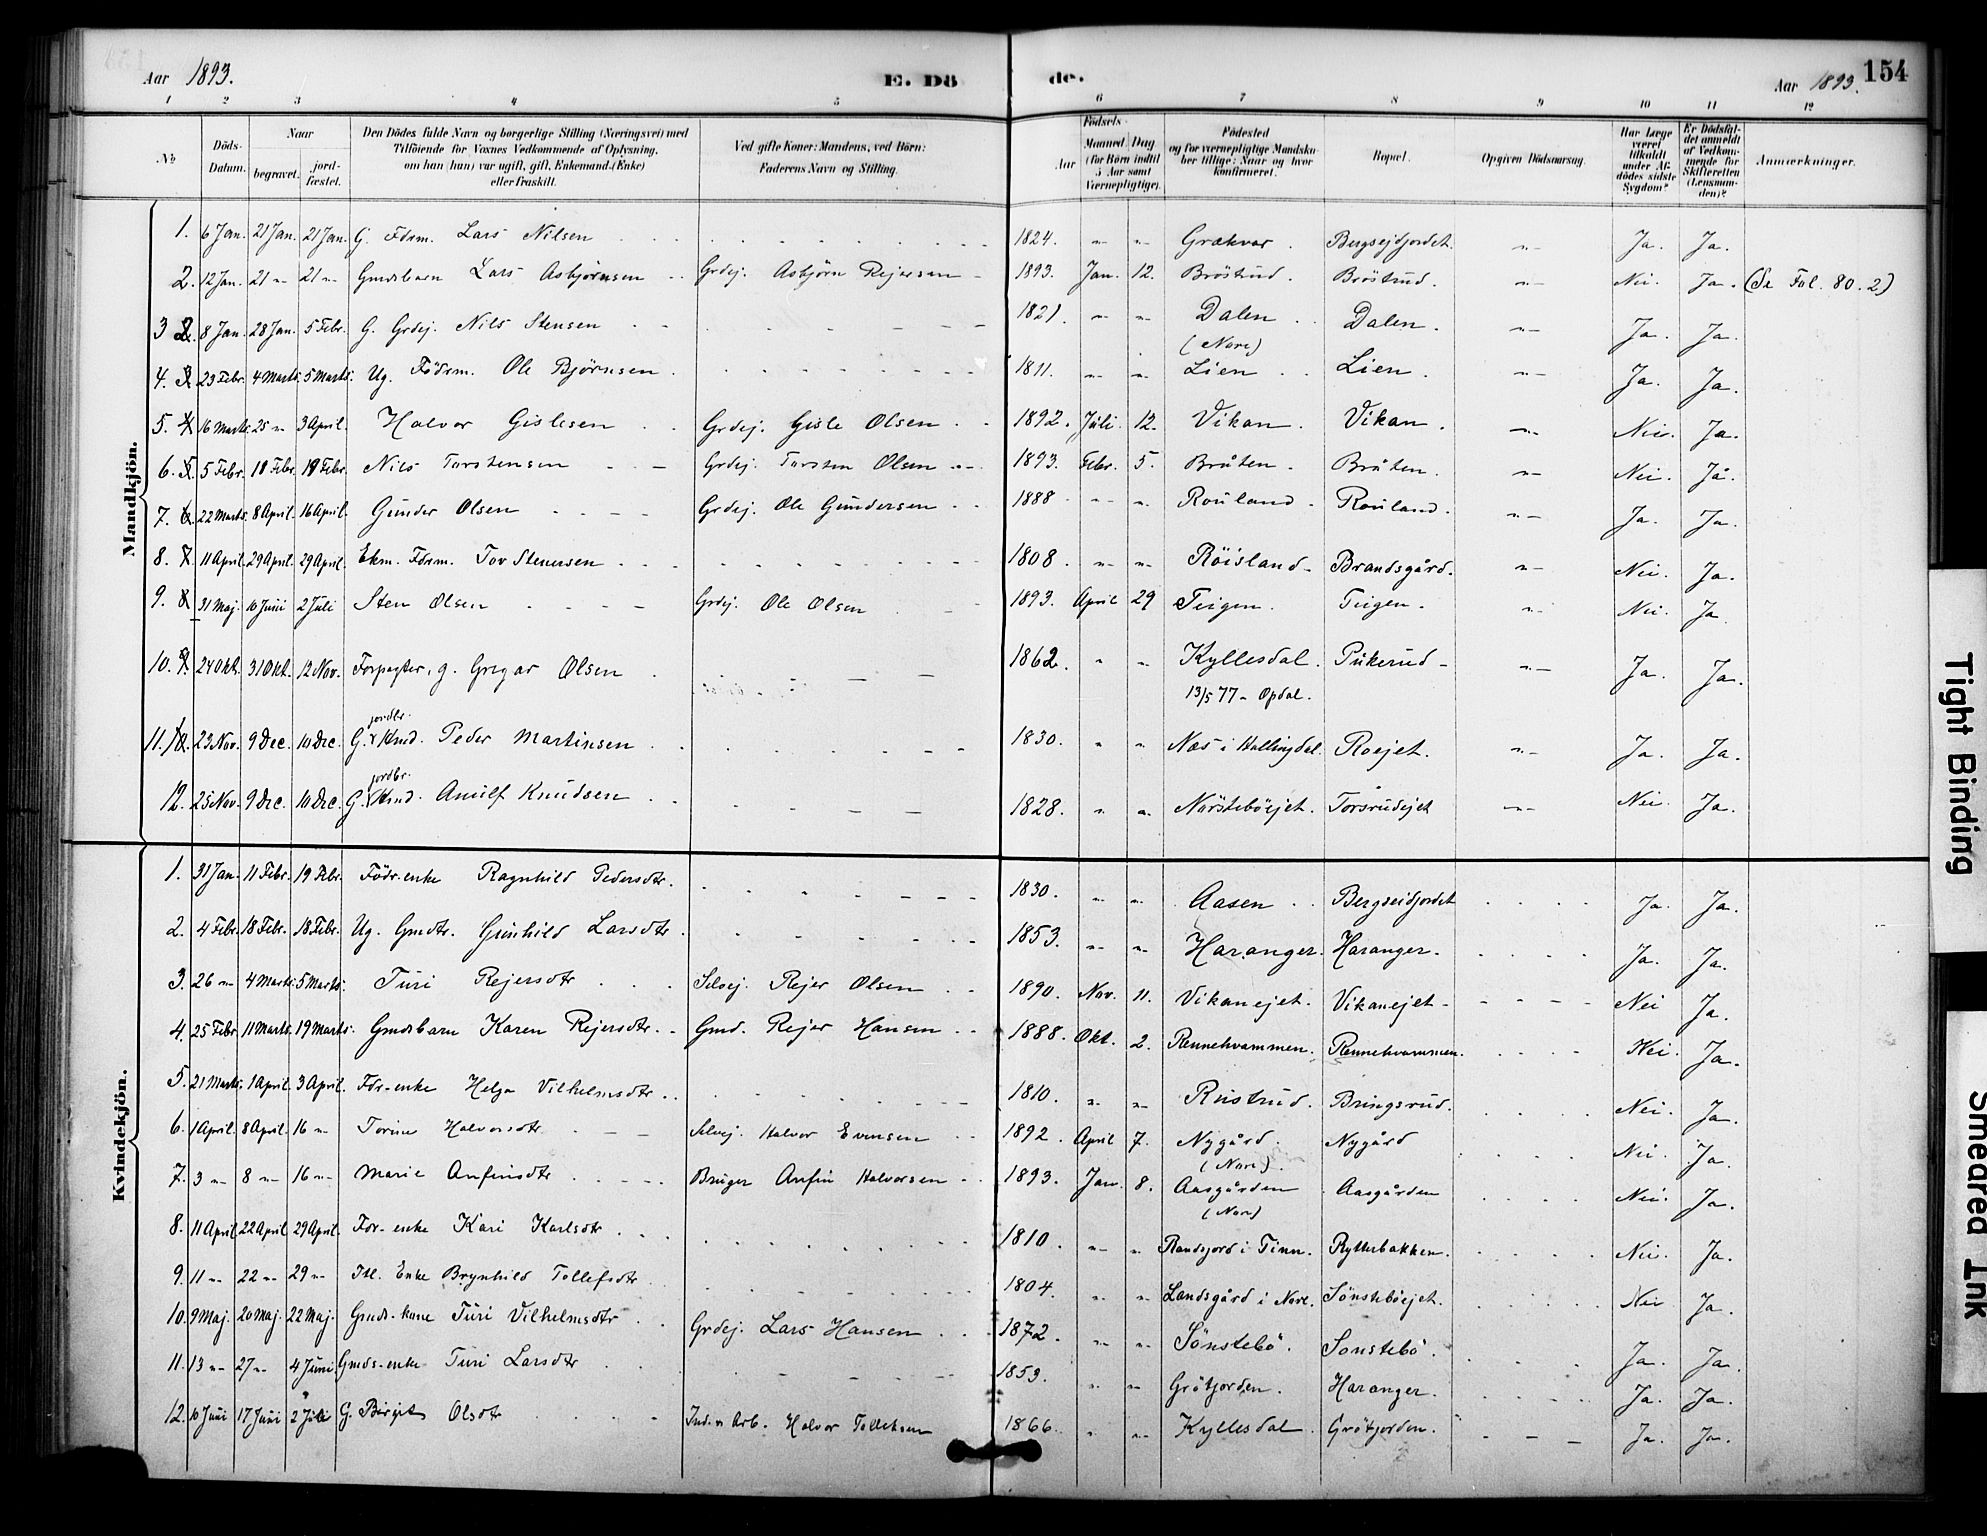 Aar 1893. E. Dö de. Aar 1893. 154
1 2 3 4 5 6 7 8 9 10 11 12
No Döds-Datum. Naar begravet. jord-fæstet. Den Dödes fulde Navn og borgerlige Stilling (Næringsvei) med Tilföiende for Voxnes Vedkommende af Oplysning, om han (hun) var ugift, gift, Enkemand (Enke) eller fraskilt. Ved gifte Koner: Mandens, ved Börn: Faderens Navn og Stilling. Födsels- Aar Maaned Dag (for Börn indtil 5 Aar samt Værnepligtige). Födested og for værnepligtige Mandskaber tillige: Naar og hvor konfirmeret. Bopæl. Opgiven Dödsaarsag. Har Læge været tilkaldt under Afdödes sidste Sygdom? Er Dödsfaldet anmeldt af Vedkommende for Skifteretten (Lensmanden)? Anmærkninger.
Mandkjön.
1. 6 Jan. 21 Jan. 21 Jan. G. Fdrm. Lars Nilsen 1824. " " Grækvar. Bergsejdfjordet. " Ja. Ja.
2. 12 Jan. 21 " 21 " Gmdsbarn Lars Asbjørnsen Grdej. Asbjørn Rejersen 1893. Jan. 12. Bröstrud. Bröstrud. " Nei. Ja. (Se Fol. 80. 2)
3 8 Jan. 28 Jan. 5 Febr. G. Grdej. Nils Stensen 1821. " " Dalen (Nore) Dalen. " Ja. Ja.
4. 23 Febr. 4 Marts. 5 Marts. Ug. Födrm. Ole Bjørnsen. 1811. " " Lien Lien. " Ja. Ja.
5. 16 Marts. 25 " 3 April. Halvor Gislesen Grdej. Gisle Olsen 1892. Juli. 12. Vikan. Vikan. " Nei. Ja.
6. 5 Febr. 18 Febr. 18 Febr. Nils Torstensen Grdej. Torsten Olsen 1893. Febr. 5. Bråten. Bråten. " Nei. Ja.
7. 22 Marts. 8 April. 16 April. Gunder Olsen Grdej. Ole Gundersen 1888 " " Rouland. Rouland. " Ja. Ja.
8. 11 April. 29 April. 29 April. Ekm. Fdrm. Tov Stenersen 1808. " " Röisland Brandsgård. " Nei. Ja.
9. 31 Maj. 10 Juni 2 Juli Sten Olsen Grdej. Ole Olsen 1893. April 29 Teigen. Teigen. " Nei. Ja
10. 24 Okt. 31 Okt. 12 Nov. Forpagter, g. Gregar Olsen 1862. " " Kyllesdal. 13/5 77 - Opdal. Pukerud " Ja. Ja.
11. 23 Nov. 9 Dec. 10 Dec. G. jordbr. Hmd. Peder Martinsen 1830. " " Næs i Hallingdal. Roejet. " Ja. Ja.
12. 25 Nov. 9 Dec. 10 Dec. G. jordbr. Hmd. Anulf Knudsen 1828. " " Norsteböejet. Torsrudejet " Nei. Ja.
Kvindekjön.
1. 31 Jan. 11 Febr. 19 Febr. Födr.enke Ragnhild Pedersdtr. 1830. " " Aasen Bergseidfjordet Ja. Ja.
2. 4 Febr. 18 Febr. 18 Febr. Ug. Gmdtr. Gunhild Larsdtr. 1853. " " Haranger. Haranger. Ja. Ja.
3. 26 " 4 Marts. 5 Marts. Turi Rejersdtr Selvej. Rejer Olsen 1890. Nov. 11. Vikanejet. Vikanejet Nei Ja.
4. 25 Febr 11 Marts. 19 Marts. Gmdsbarn Karen Rejersdtr. Gmd. Rejer Hansen 1888. Okt. 2. Rennehvammen. Rennehvammen. Nei. Ja.
5. 21 Marts. 1 April. 3 April. Fdr-enke Helga Vilhelmsdtr. 1810. " " Rustrud. Bringsrud. Nei. Ja.
6. 1 April. 8 April. 16 " Torine Halvorsdtr. Selvej. Halvor Evensen 1892. April 7. Nygård. (Nore). Nygård Nei. Ja.
7. 3 " 8 " 16 " Marie Anfinsdtr Bruger Anfin Halvorsen 1893. Jan. 8. Aasgården (Nore) Aasgården Nei. Ja.
8. 11 April 22 April. 29 April. Fdr-enke Kari Karlsdtr 1810. " " Randsjord i Tinn. Rytterbakken. Nei. Ja.
9. 11 " 22 " 29 " Enke Brynhild Tollefsdtr 1804. " " Landsgård i Nore. Sönsteböejet. Nei Ja.
10. 9 Maj. 20 Maj. 22 Maj. Gmds-kone Turi Vilhelmsdtr Grdej. Lars Hansen 1872. " " Sönstebö. Sonstebö. Ja. Ja.
11. 13 " 27 " 4 Juni Gmds-enke Turi Larsdtr 1859. " " Grötjorden. Haranger. Ja. Ja.
12. 10 Juni 17 Juni 2 Juli G. Birgit Olsdtr Arb. Halvor Tollefsen 1866. " " Kyllesdal Grötjorden. Ja. Ja.
Tight Binding
Smeared Ink